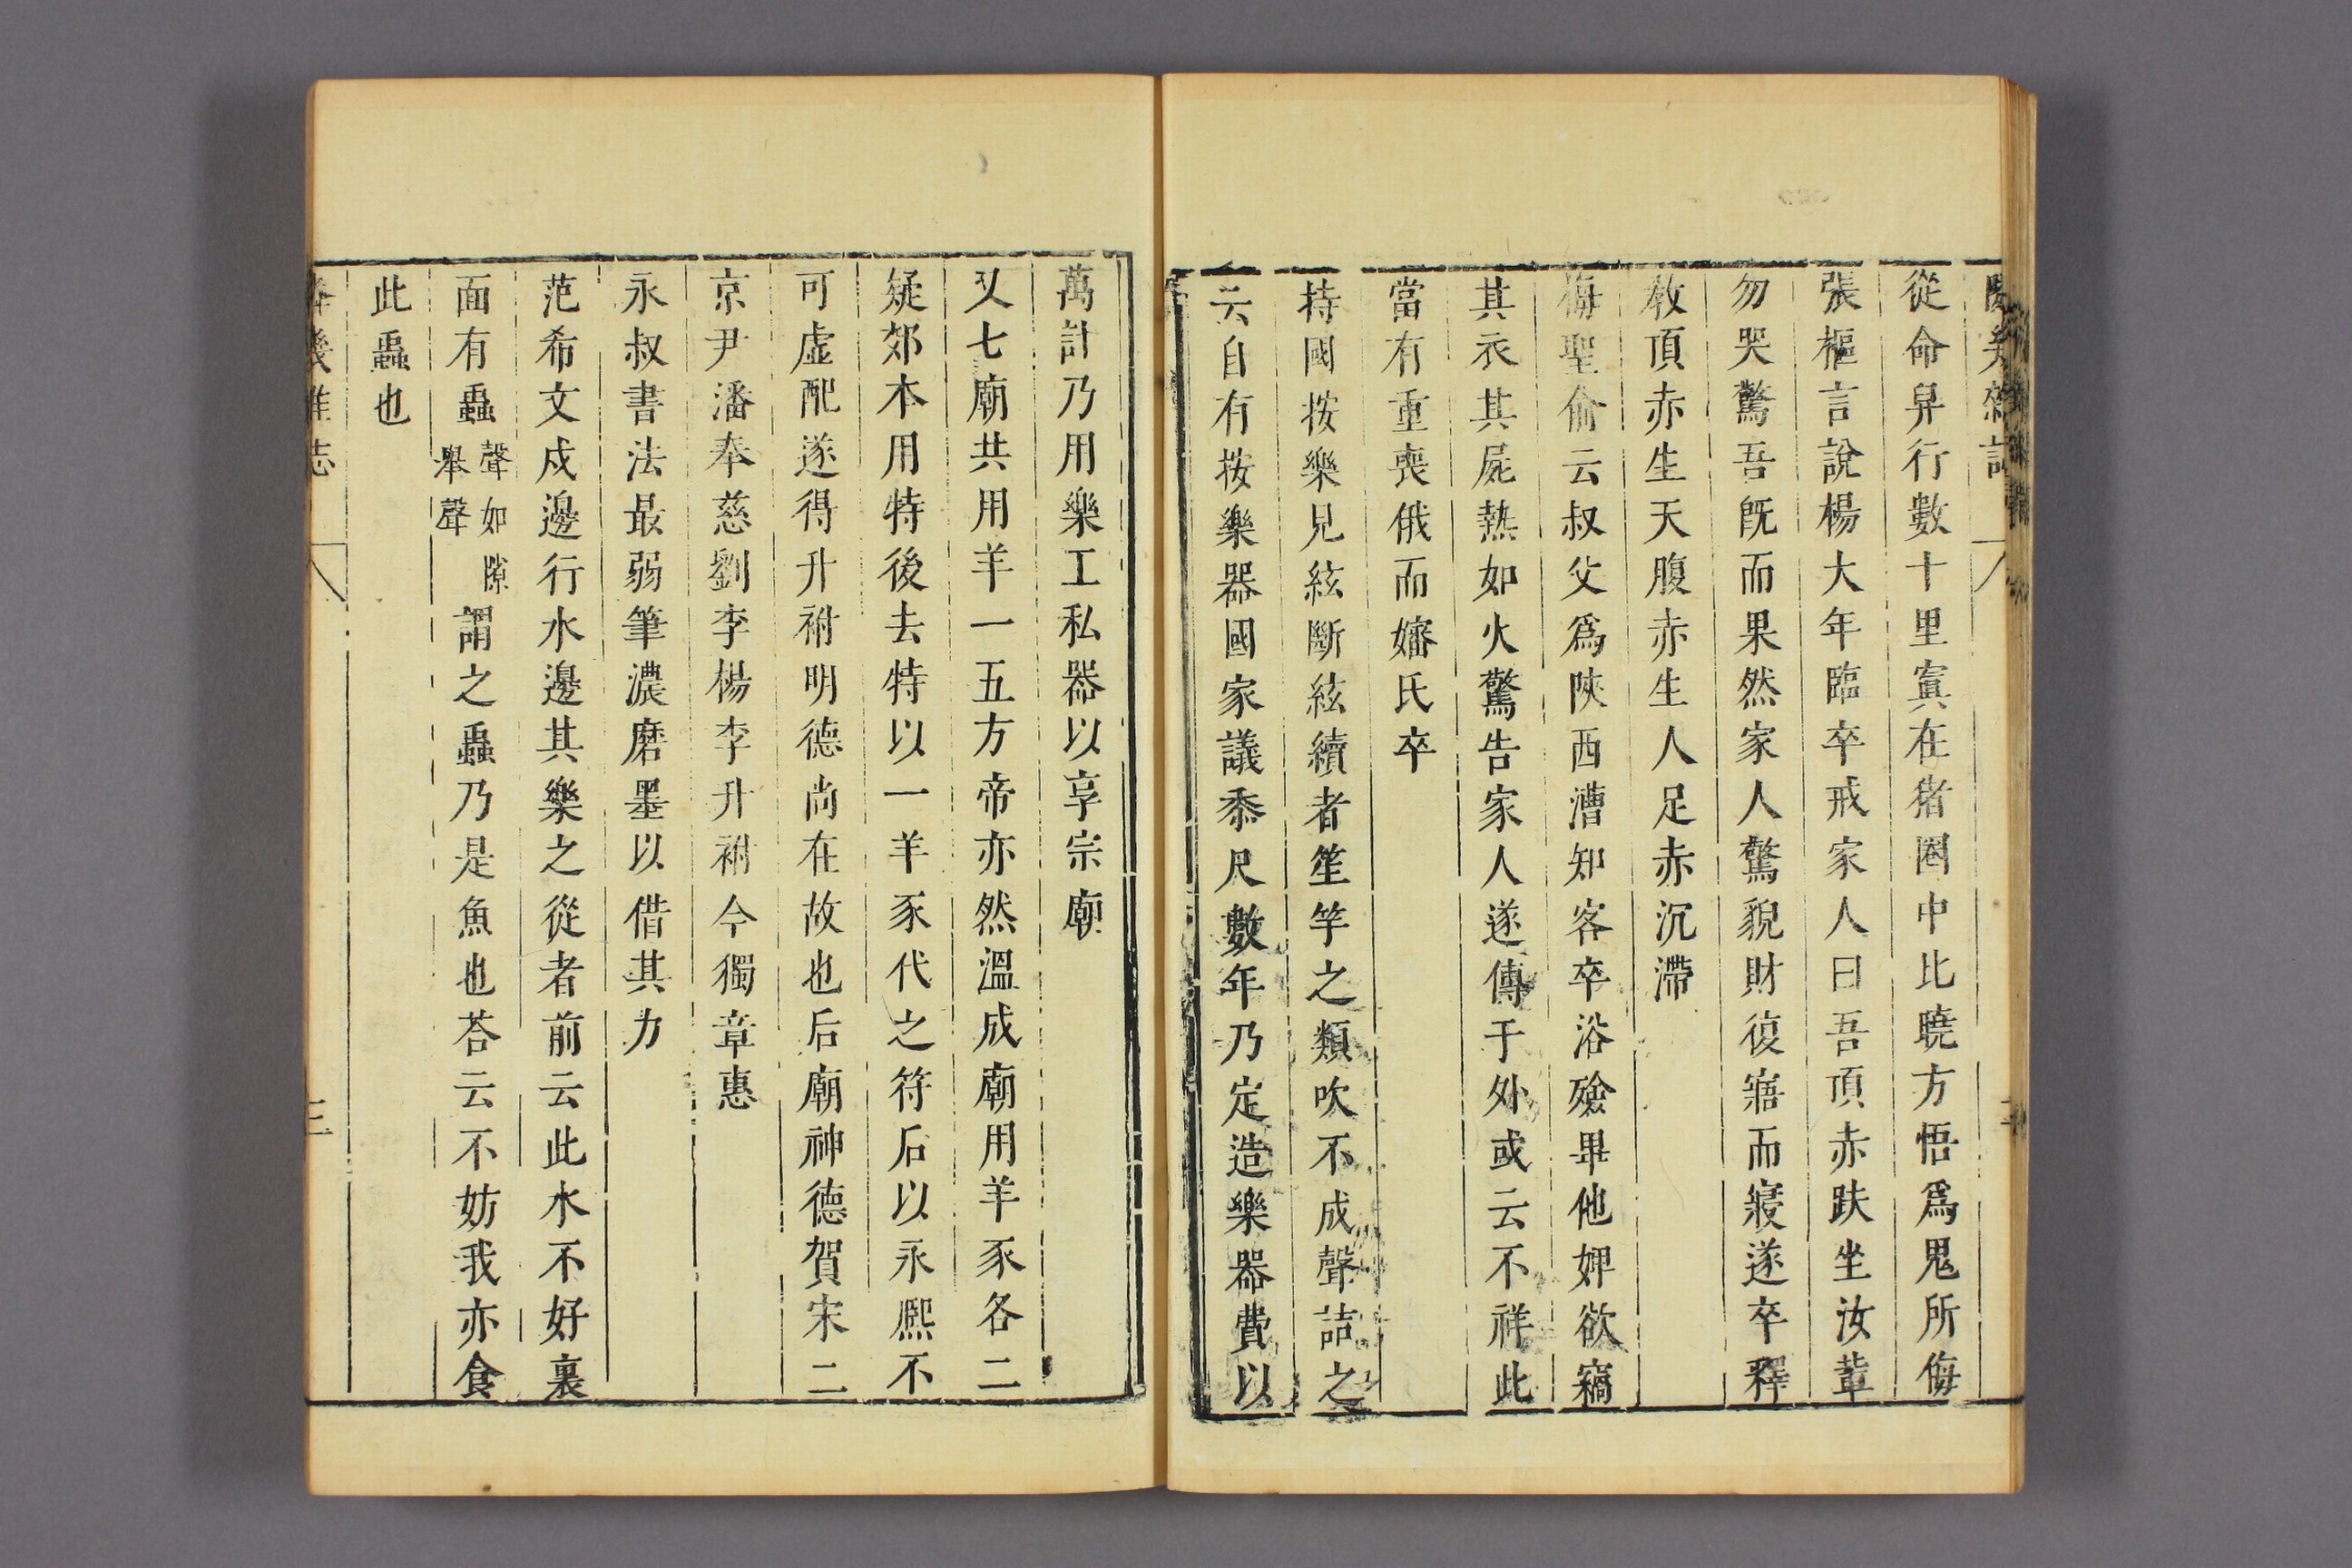 從命昇行數十里寘在猪圈中比曉方悟爲鬼所侮
張樞言說楊大年臨卒戒家人曰吾頂赤趺坐汝輩
勿哭驚吾旣而果然家人驚貌財復寤而寢遂卒釋
敎頂赤生天腹赤生人足赤沉滯
梅聖俞云叔父爲陝西漕知客卒浴殮畢他婢欲竊
其衣其屍熱如火驚告家人遂傳于外或云不祥此
當有重喪俄而嬸氏卒
持國按樂見絃斷絃續者笙竽之類吹不成聲詰之
云自有按樂器國家議黍尺數年乃定造樂器費以
萬計乃用樂工私器以享宗廟
又七廟共用羊一五方帝亦然溫成廟用羊豕各二
疑郊本用特後去特以一羊豕代之符后以永熙不
可虛配遂得升祔明德尚在故也后廟神德賀宋二
京尹潘奉慈劉李楊李升祔今獨章惠
永叔書法最弱筆濃磨墨以借其力
范希文戍邊行水邊甚樂之從者前云此水不好裏
面有蟲聲如隙舉聲謂之蟲乃是魚也荅云不妨我亦食
此蟲也
雜志
三